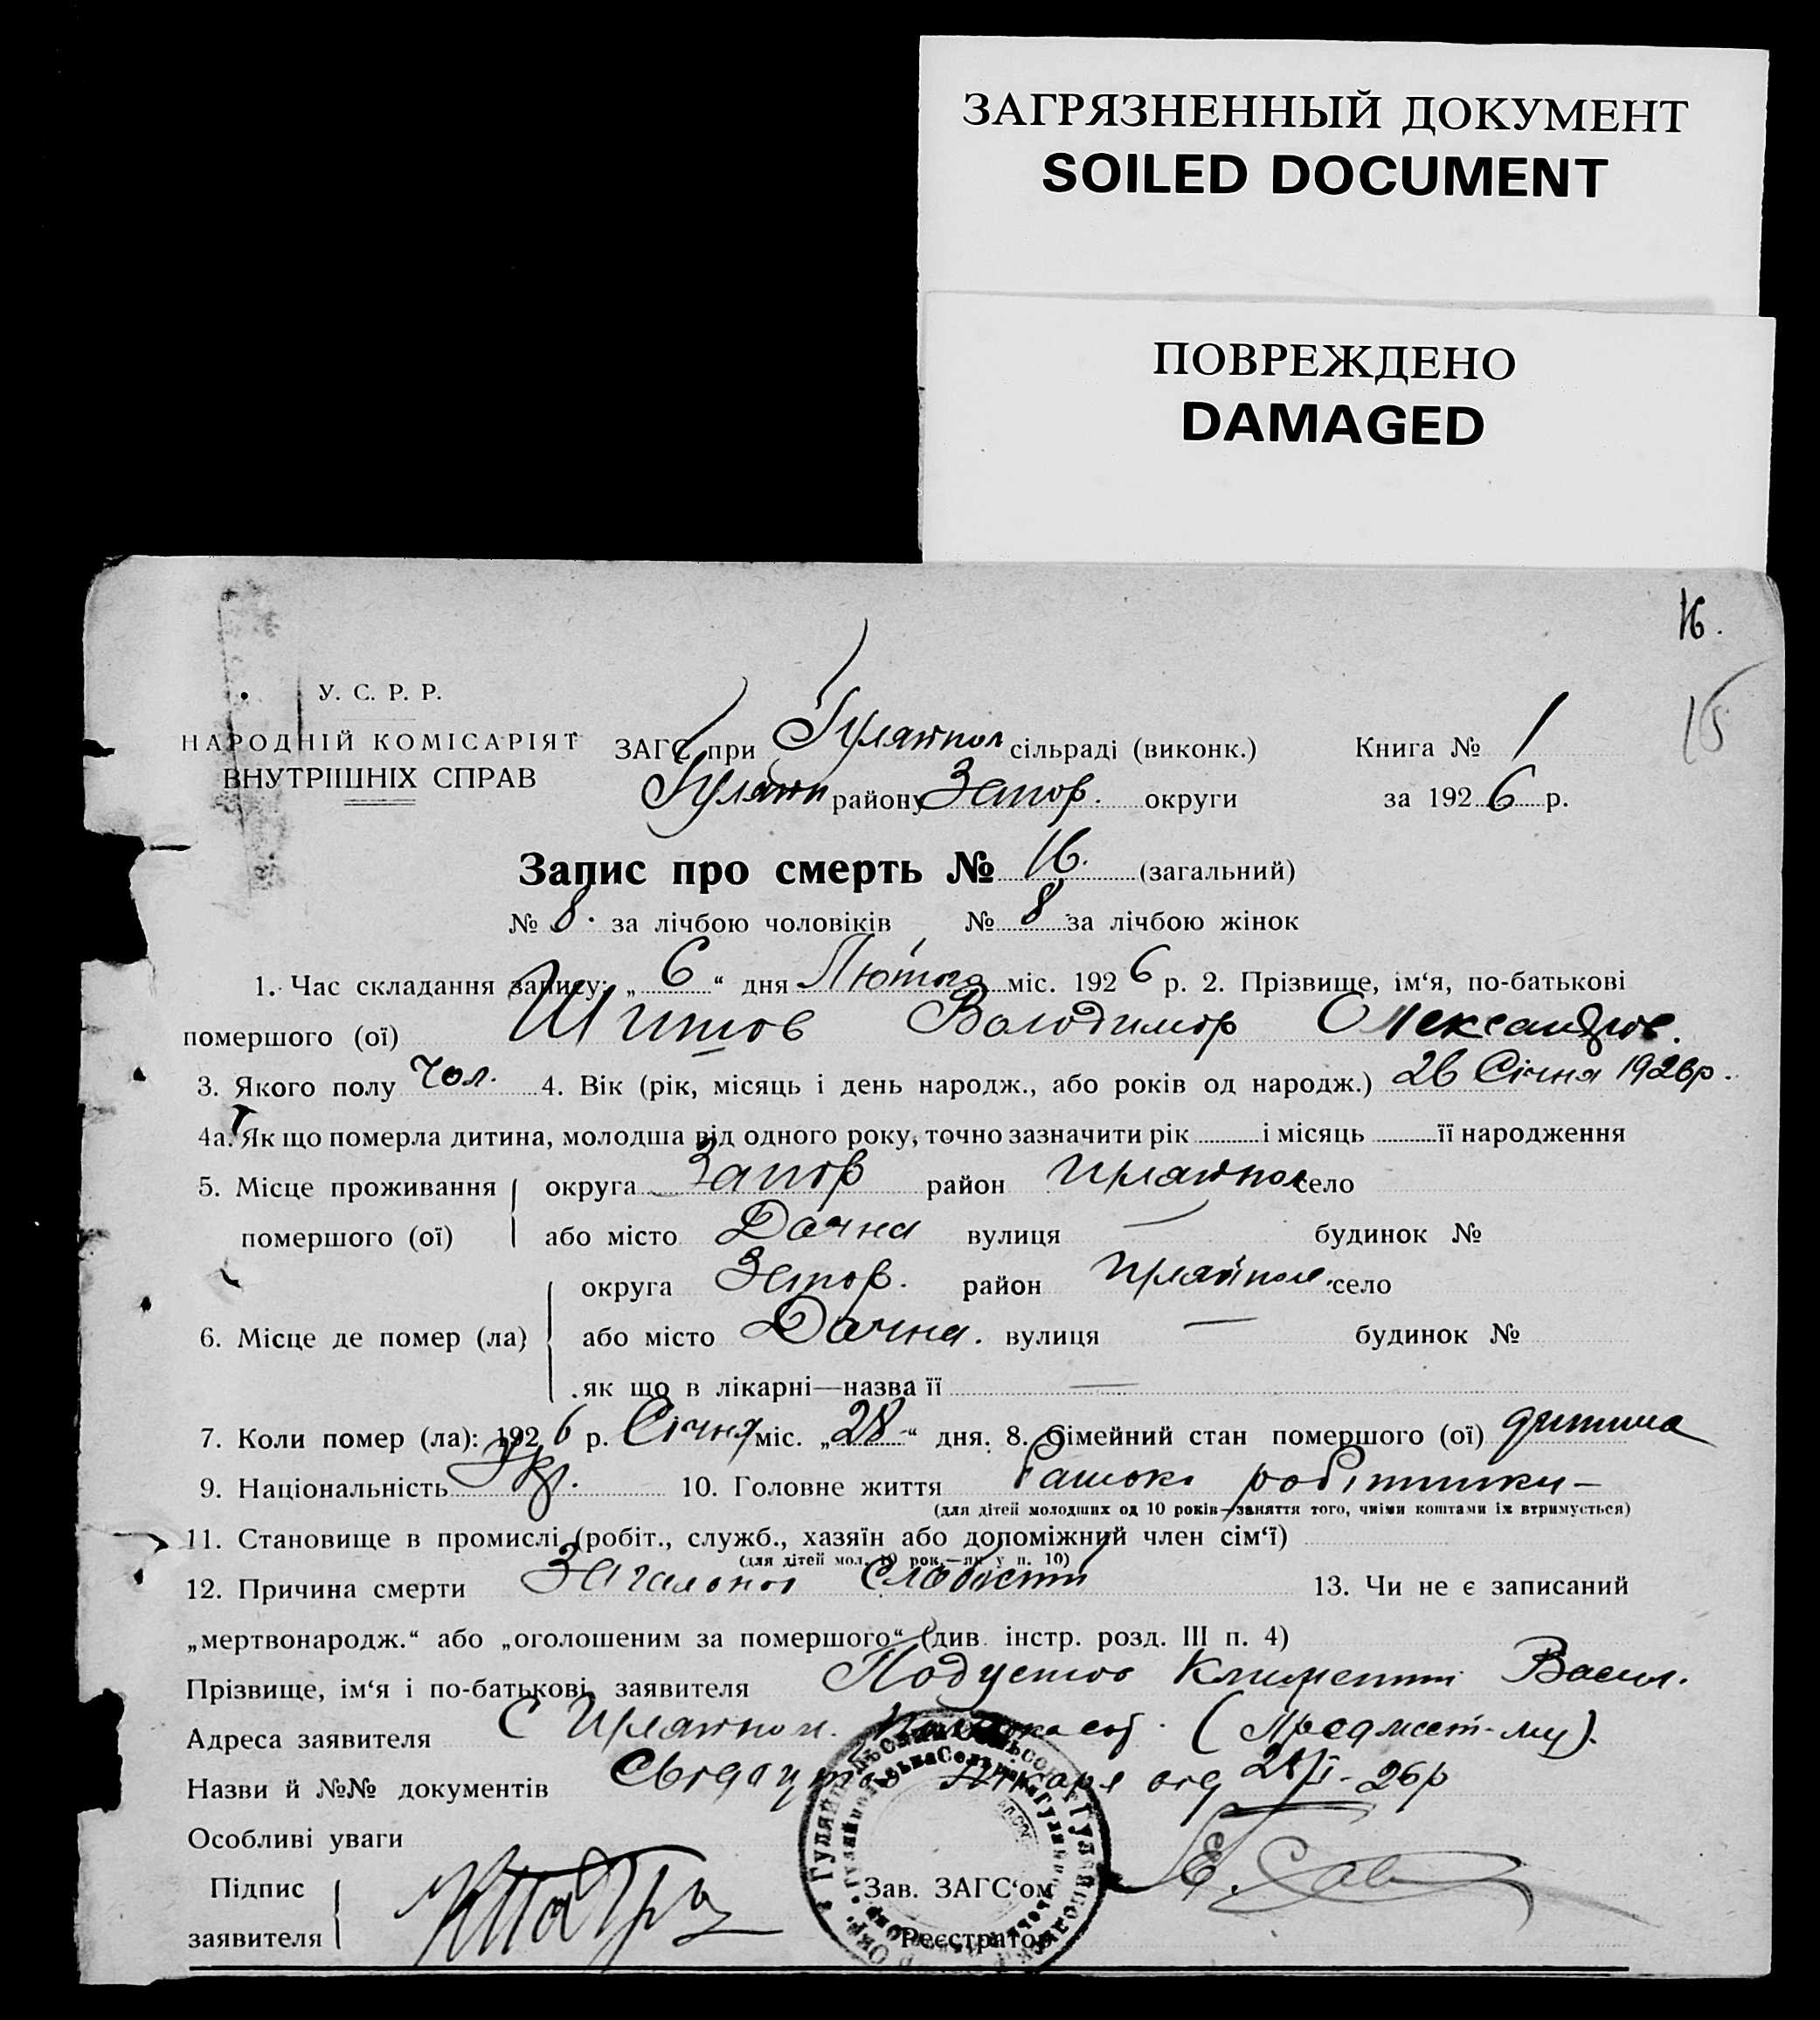 ЗАГРЯЗНЕННЫЙ ДОКУМЕНТ
SOILED DOCUMENT
ПОВРЕЖДЕНО
DAMAGED
16.
15
У. С. Р. Р.
НАРОДНІЙ КОМІСАРІЯТ
ВНУТРІШНІХ СПРАВ
ЗАГС при Гуляйпол сільраді (виконк.) Книга № 1
Гуляйп району Запор. округи за 1926 р.
Запис про смерть № 16. (загальний)
№ 8. за лічбою чоловіків № 8 за лічбою жінок
1. Час складання запису: „6“ дня Лютого міс. 1926 р. 2. Прізвище, ім‘я, по-батькові
помершого (ої) Шитов Володимир Олександров.
3. Якого полу Чол. 4. Вік (рік, місяць і день народж., або років од народж.) 26 Січня 1926р.
4а. Як що померла дитина, молодша від одного року, точно зазначити рік і місяць її народження
5. Місце проживання округа Запор район Гуляйпол село
помершого (ої) або місто Дачна вулиця — будинок №
округа Запор. район Гуляйпол. село
6. Місце де помер (ла) або місто Дачна. вулиця — будинок №
як що в лікарні—назва її —
7. Коли помер (ла): 1926 р. Січня міс. „28“ дня. 8. Сімейний стан помершого (ої) дитина
9. Національність Укр. 10. Головне життя
(для дітей молодших од 10 років—заняття того, чиїми коштами їх втримується)
11. Становище в промислі (робіт., служб., хазяїн або допоміжний член сім‘ї)
(для дітей мол. 10 рок.—як у п. 10)
12. Причина смерти Загальної слабости 13. Чи не є записаний
„мертвонародж.“ або „оголошеним за помершого“ (див. інстр. розд. III п. 4)
Прізвище, ім‘я і по-батькові заявителя Васил.
Адреса заявителя с Гуляйпол.
Назви й №№ документів лікаря від 26р
Особливі уваги
Підпис
заявителя
Зав. ЗАГС‘ом
Реєстратор